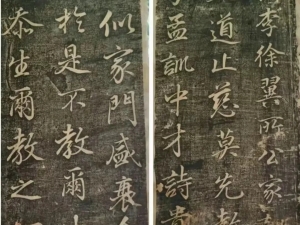 李徐翼所公家
道止慈莫先教
孟訓中才詩書
似家門盛衰
於是不教爾
忝生爾教之